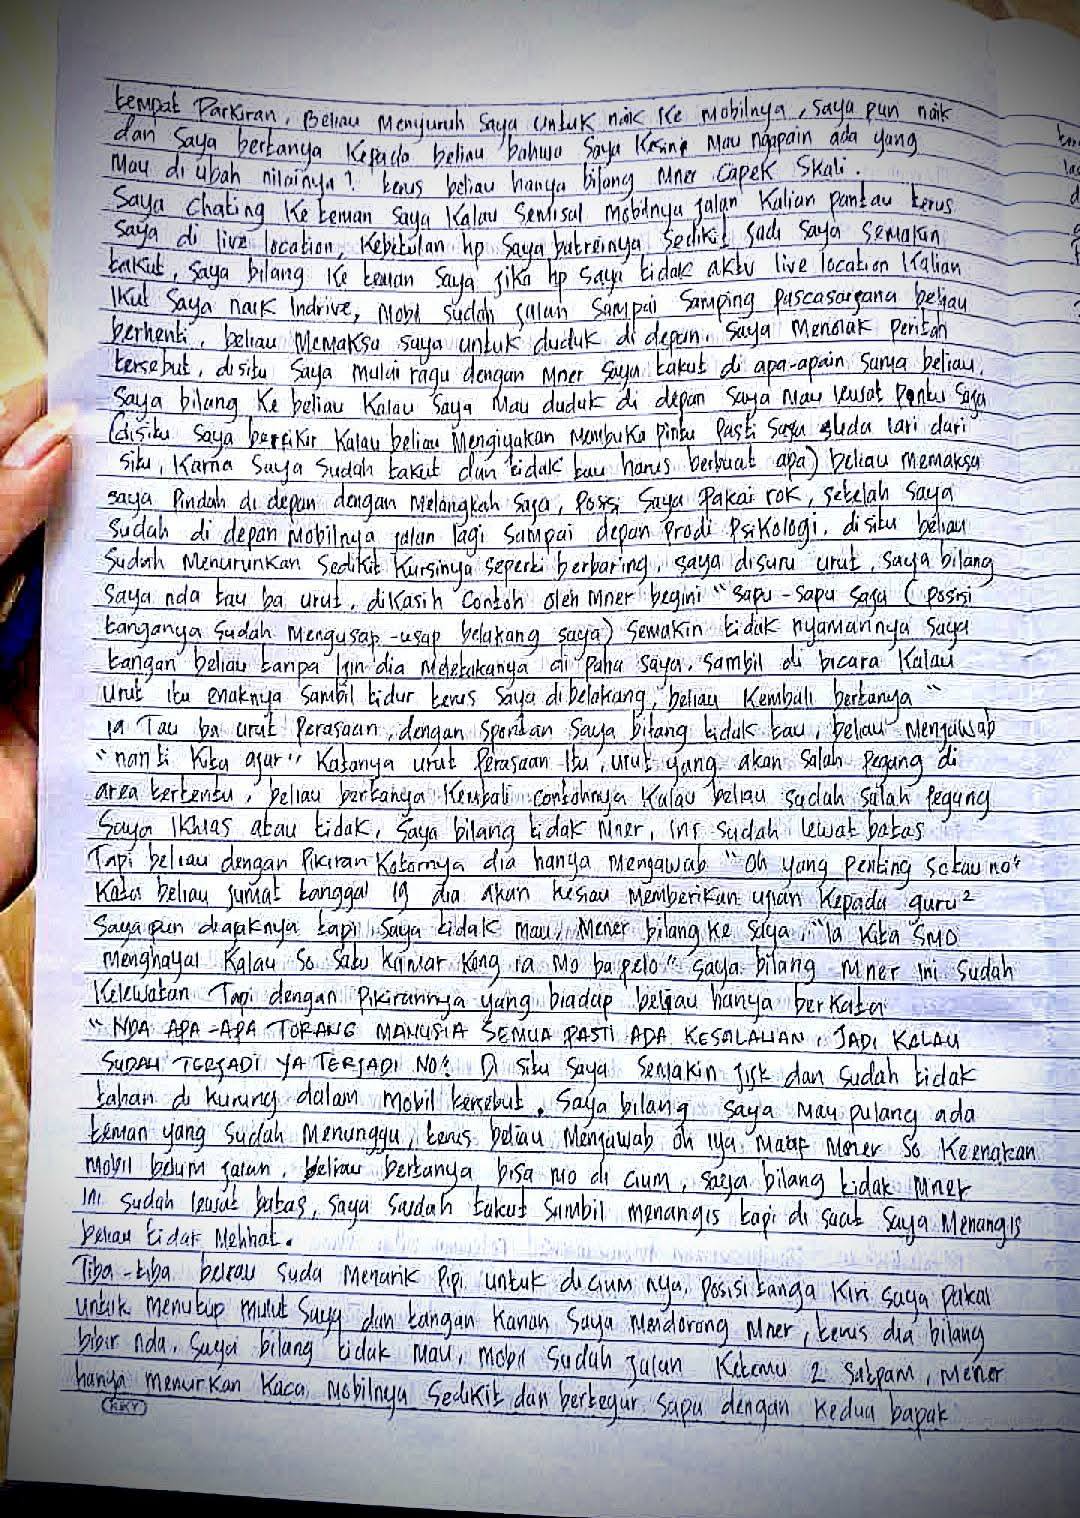 tempat Parkiran, Beliau Menyuruh Saya untuk naik Ke Mobilnya, saya pun naik
dan Saya bertanya Kepada beliau bahwa Saya Kesine Mau ngapain ada yang
Mau di ubah nilainya? terus beliau hanya bilang Mner Capek Skali.
Saya Chating Ke teman Saya Kalau Semisal Mobilnya jalan Kalian pantau terus
Saya di live location, Kebetulan hp Saya batreinya Sedikit Jadi Saya Semakin
takut, Saya bilang Ke teman Saya jika hp Saya tidak aktv live location Kalian
Ikut Saya naik Indrive, Mobil Sudah jalan Sampai Samping Pascasarjana beliau
berhenti, beliau Memaksa saya untuk duduk di depan, Saya Menolak Perintah
tersebut, disitu Saya Mulai ragu dengan Mner Saya takut di apa-apain Sama beliau.
Saya bilang Ke beliau Kalau Saya Mau duduk di depan Saya Mau lewat Pintu Saja
(disitu Saya berfikir Kalau beliau Mengiyakan Membuka Pintu Pasti Saya Suda lari dari
situ, Karna Saya Sudah takut dan tidak tau harus berbuat apa) beliau Memaksa
saya Pindah di depan dengan Melangkah Saja, Posisi Saya Pakai rok, setelah Saya
Sudah di depan Mobilnya jalan lagi Sampai depan Prodi Psikologi, disitu beliau
Sudah Menurunkan Sedikit Kursinya Seperti berbaring, saya disuru urut, Saya bilang
Saya nda tau ba urut, dikasih Contoh oleh Mner begini "Sapu-Sapu Saja (Posisi
tanganya Sudah Mengusap-usap belakang saya) Semakin tidak nyamannya Saya
tangan beliau tanpa Izin dia Meletakanya di Paha saya, Sambil di bicara Kalau
Urut itu enaknya Sambil tidur terus Saya di belakang, beliau Kembali bertanya "
ia Tau ba urut Perasaan, dengan Spontan Saya bilang tidak tau, beliau Menjawab
"nanti Kita ajar" Katanya urut Perasaan Itu, urut yang akan Salah Pegang di
area tertentu, beliau bertanya Kembali Contohnya Kalau beliau Sudah Salah Pegang
Saya Ikhlas atau tidak, Saya bilang tidak Mner, ini Sudah lewat batas
Tapi beliau dengan Pikiran Kotornya dia hanya Mengawab "Oh yang Penting Sotau no"
Kata beliau Jumat tanggal 19 dia akan Memberikan ujian Kepada guru²
Saya pun diajaknya tapi Saya tidak mau, Mener bilang ke Saya, "Ia Kita SMO
Menghayal Kalau So Satu Kamar Kong ia Mo bapelo" Saya bilang Mner ini Sudah
Kelewatan Tapi dengan Pikirannya yang biadap beliau hanya berKata
"NDA APA-APA TORANG MANUSIA SEMUA PASTI ADA KESALAHAN, JADI KALAU
SUDAH TERJADI YA TERJADI NO" Di situ Saya Semakin Jijik dan Sudah tidak
tahan di Kurung dalam Mobil tersebut, Saya bilang saya Mau pulang ada
teman yang Sudah Menunggu, terus beliau Menjawab oh iya Maaf Mener So Keenakan
Mobil belum jalan, beliau bertanya bisa Mo di Cium, saya bilang tidak Mner
Ini Sudah lewat batas, Saya Sudah takut Sambil menangis tapi di Saat Saya Menangis
beliau tidak Melihat.
Tiba-tiba beliau Suda Menarik Pipi untuk diciumnya, Posisi tanga Kiri Saya Pakai
untuk menutup mulut Saya dan tangan Kanan Saya Mendorong Mner, terus dia bilang
bibir nda, Saya bilang tidak Mau, Mobil Sudah jalan Ketemu 2 Satpam, Mener
hanya menurKan Kaca Mobilnya Sedikit dan bertegur Sapa dengan Kedua bapak
KKY